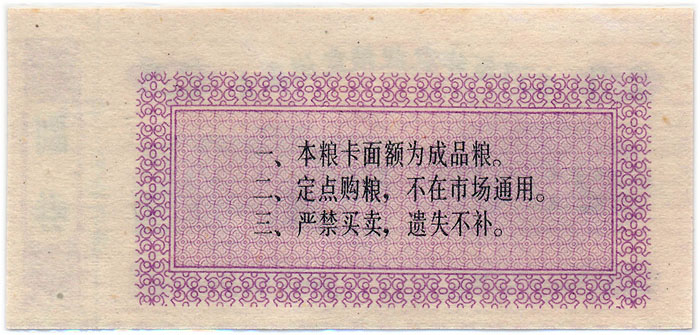 一、本粮卡面额为成品粮。
二、定点购粮，不在市场通用。
三、严禁买卖，遗失不补。